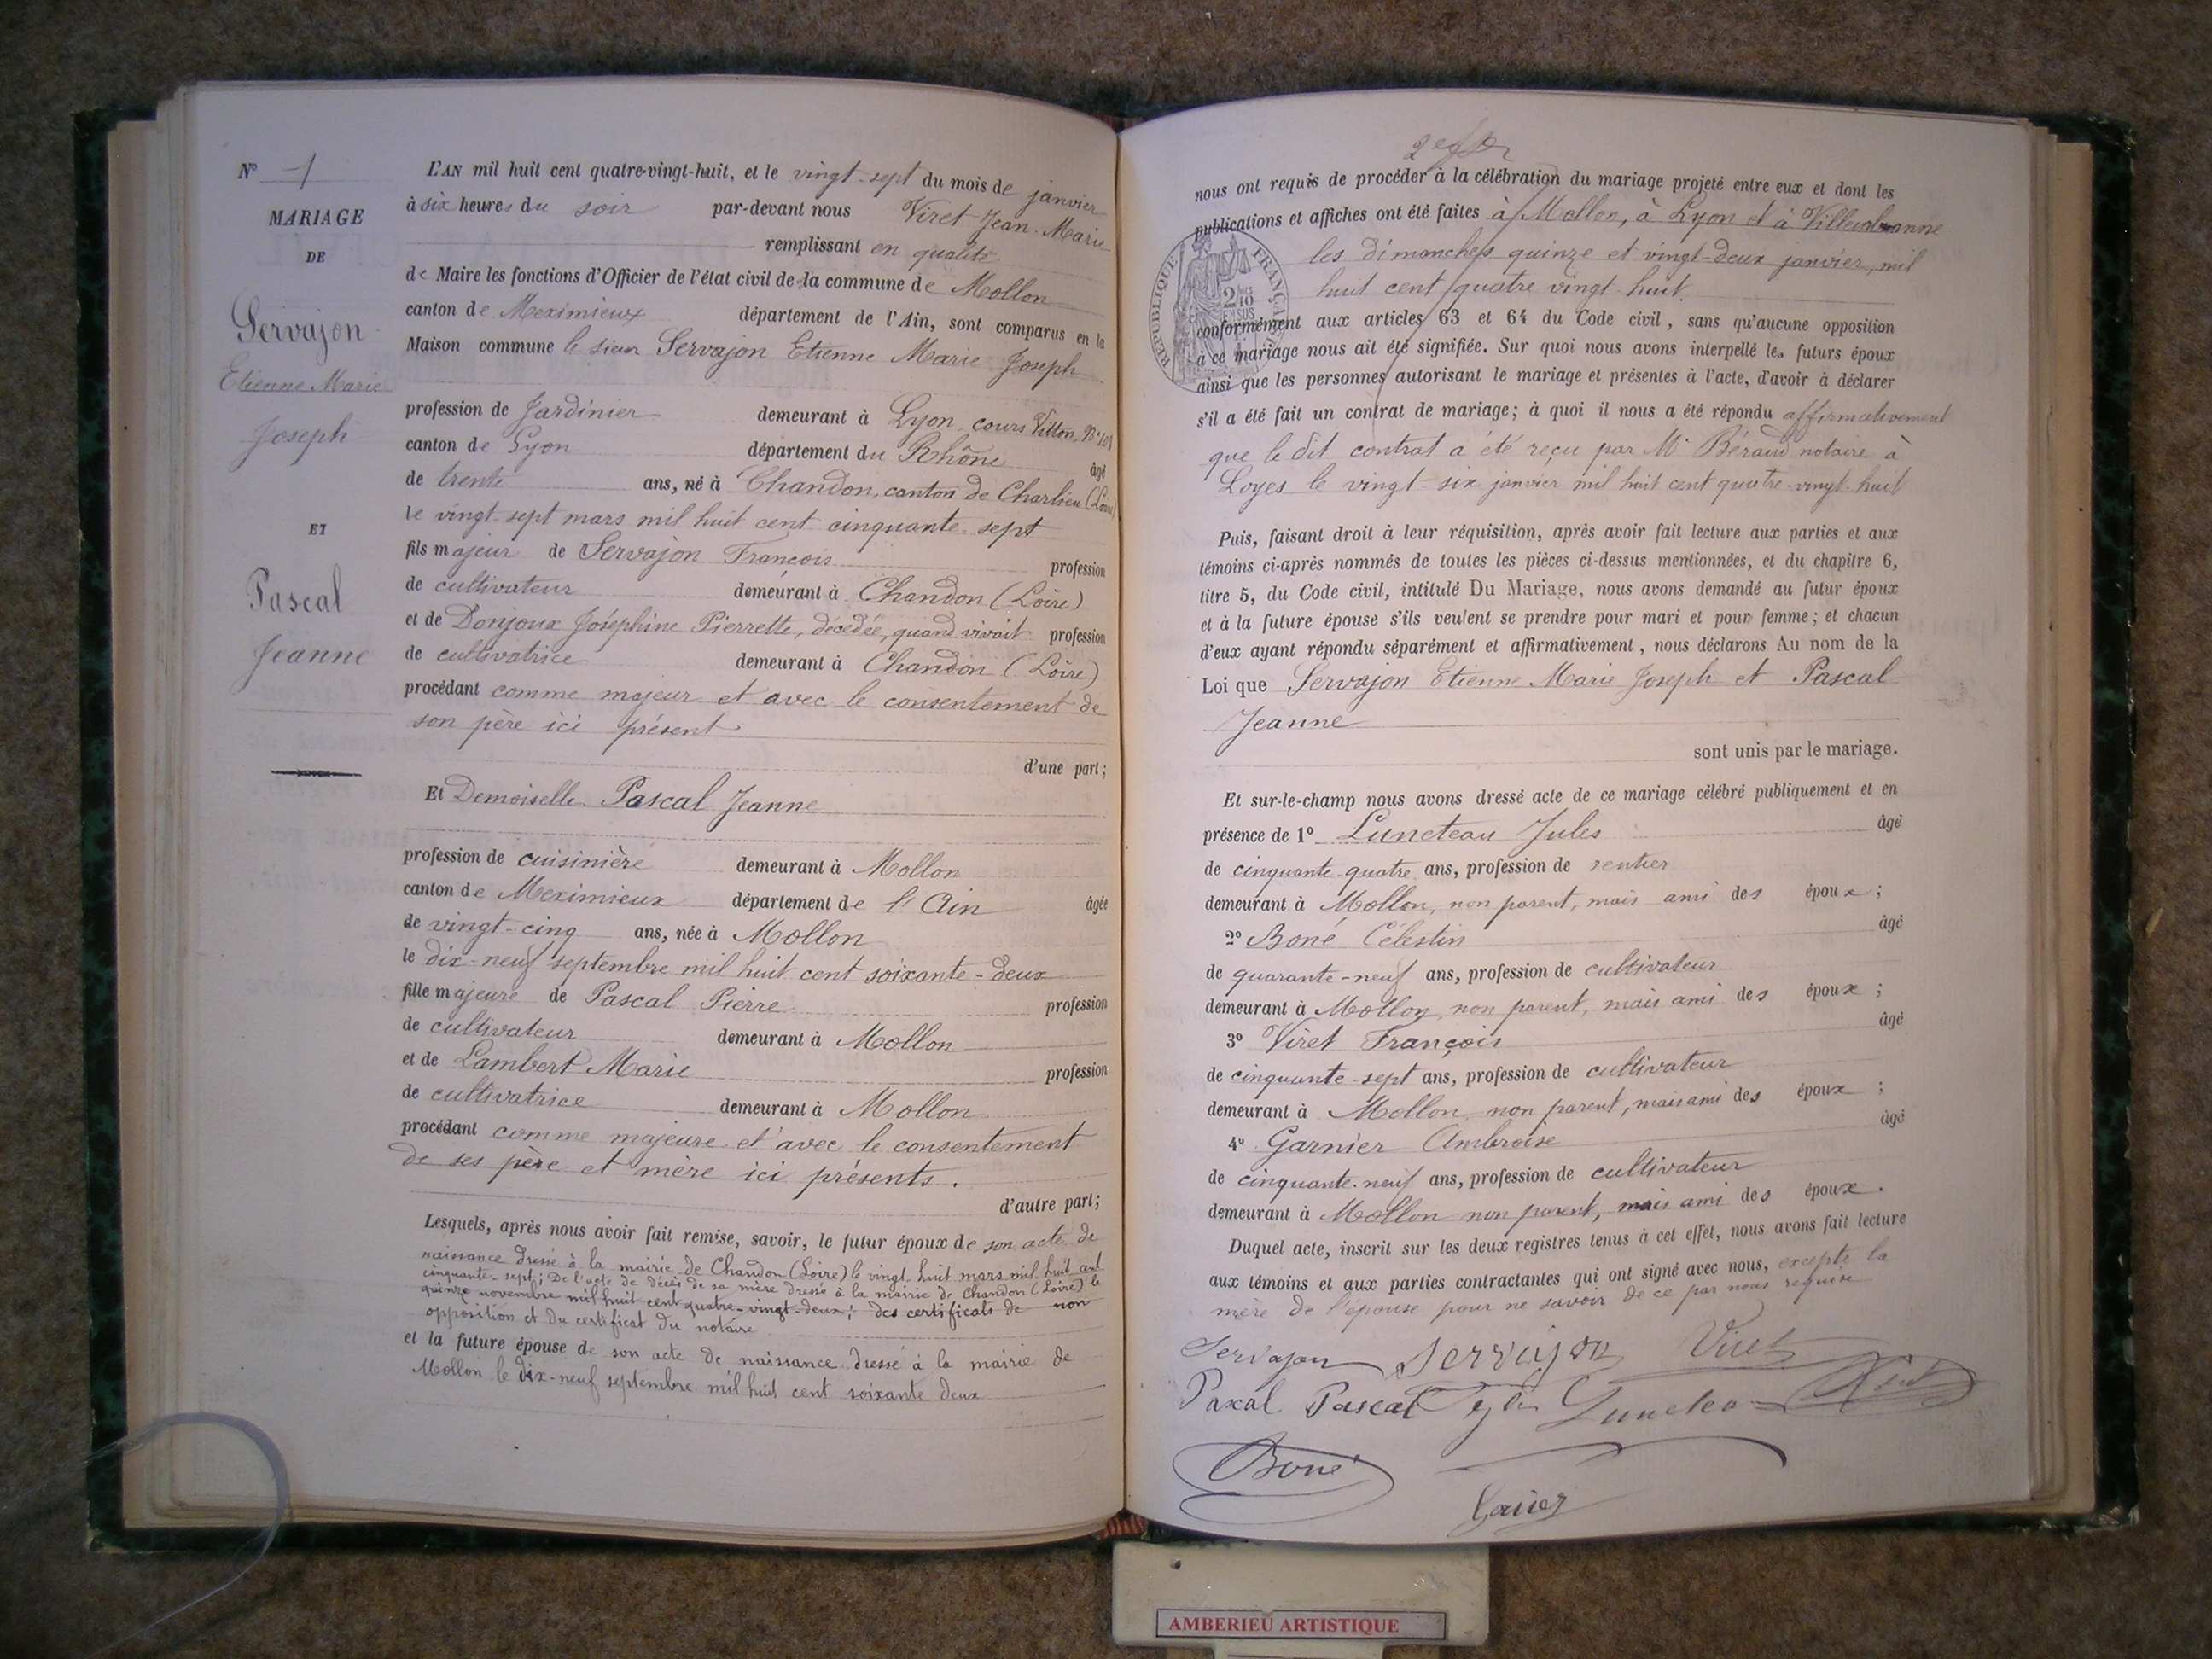 N° 1
MARIAGE
DE
Servajon
Etienne Marie
Joseph
ET
Pascal
Jeanne
L'AN mil huit cent quatre-vingt-huit, et le vingt-sept du mois de janvier
à six heures du soir par-devant nous Viret Jean-Marie
remplissant en qualité
de Maire les fonctions d'Officier de l'état civil de la commune de Mollon
canton de Meximieux département de l'Ain, sont comparus en la
Maison commune le sieur Servajon Etienne Marie Joseph
profession de Jardinier demeurant à Lyon, cours Vitton, N°
canton de Lyon département du Rhône âgé
de trente ans, né à Chandon, canton de Charlieu (Loire)
le vingt-sept mars mil huit cent cinquante-sept
fils majeur de Servajon François profession
de cultivateur demeurant à Chandon (Loire)
et de Donjoux Joséphine Pierrette, décédée, quand vivait profession
de cultivatrice demeurant à Chandon (Loire)
procédant comme majeur et avec le consentement de
son père ici présent
d'une part;
Et Demoiselle Pascal Jeanne
profession de cuisinière demeurant à Mollon
canton de Meximieux département de l'Ain âgée
de vingt-cinq ans, née à Mollon
le dix-neuf septembre mil huit cent soixante-deux
fille majeure de Pascal Pierre profession
de cultivateur demeurant à Mollon
et de Lambert Marie profession
de cultivatrice demeurant à Mollon
procédant comme majeure et avec le consentement
de ses père et mère ici présents.
d'autre part;
Lesquels, après nous avoir fait remise, savoir, le futur époux de son acte de
naissance dressé à la mairie de Chandon (Loire) le vingt-huit mars mil huit cent
cinquante-sept; De l'acte de décès de sa mère dressé à la mairie de Chandon (Loire) le
quinze novembre mil huit cent quatre-vingt-deux; des certificats de non
opposition et du certificat du notaire
et la future épouse de son acte de naissance dressé à la mairie de
Mollon le dix-neuf septembre mil huit cent soixante deux
nous ont requis de procéder à la célébration du mariage projeté entre eux et dont les
publications et affiches ont été faites à Mollon, à Lyon et à Villeurbanne
les dimanches quinze et vingt-deux janvier, mil
huit cent quatre vingt huit.
REPUBLIQUE FRANÇAISE
conformément aux articles 63 et 64 du Code civil, sans qu'aucune opposition
à ce mariage nous ait été signifiée. Sur quoi nous avons interpellé les futurs époux
ainsi que les personnes autorisant le mariage et présentes à l'acte, d'avoir à déclarer
s'il a été fait un contrat de mariage; à quoi il nous a été répondu affirmativement
que le dit contrat a été reçu par Me Béraud notaire à
Loyes le vingt-six janvier mil huit cent quatre-vingt-huit
Puis, faisant droit à leur réquisition, après avoir fait lecture aux parties et aux
témoins ci-après nommés de toutes les pièces ci-dessus mentionnées, et du chapitre 6,
titre 5, du Code civil, intitulé Du Mariage, nous avons demandé au futur époux
et à la future épouse s'ils veulent se prendre pour mari et pour femme; et chacun
d'eux ayant répondu séparément et affirmativement, nous déclarons Au nom de la
Loi que Servajon Etienne Marie Joseph et Pascal
Jeanne
sont unis par le mariage.
Et sur-le-champ nous avons dressé acte de ce mariage célébré publiquement et en
présence de 1° Luneteau Jules âgé
de cinquante-quatre ans, profession de rentier
demeurant à Mollon, non parent, mais ami des époux;
2° Boné Célestin âgé
de quarante-neuf ans, profession de cultivateur
demeurant à Mollon, non parent, mais ami des époux;
3° Viret François âgé
de cinquante-sept ans, profession de cultivateur
demeurant à Mollon non parent, mais ami des époux;
4° Garnier Ambroise âgé
de cinquante-neuf ans, profession de cultivateur
demeurant à Mollon non parent, mais ami des époux.
Duquel acte, inscrit sur les deux registres tenus à cet effet, nous avons fait lecture
aux témoins et aux parties contractantes qui ont signé avec nous, excepté la
mère de l'épouse pour ne savoir de ce par nous requise
Servajon Servajon Viret
Pascal Pascal
Boné
AMBERIEU ARTISTIQUE